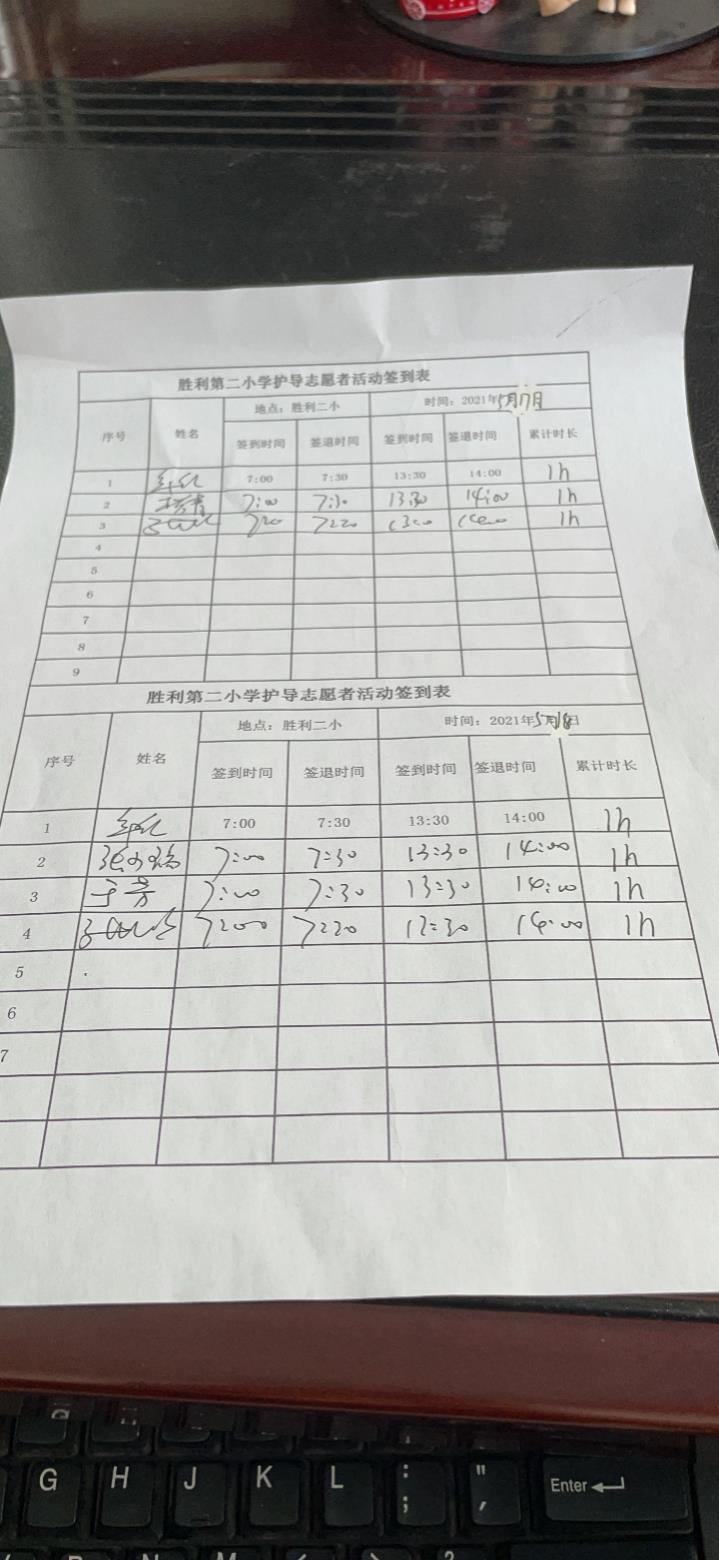 胜利第二小学护导志愿者活动签到表
序号 姓名 地点：胜利二小 时间：2021年5月17日
签到时间 签退时间 签到时间 签退时间 累计时长
1 7:00 7:30 13:30 14:00 1h
2 7:00 7:30 13:30 14:00 1h
3 1h
4
5
6
7
8
9
胜利第二小学护导志愿者活动签到表
序号 姓名 地点：胜利二小 时间：2021年5月18日
签到时间 签退时间 签到时间 签退时间 累计时长
1 7:00 7:30 13:30 14:00 1h
2 7:00 7:30 13:30 14:00 1h
3 于芳 7:00 7:30 13:30 14:00 1h
4 14:00 1h
5
6
7
G H J K L : ; " ' Enter